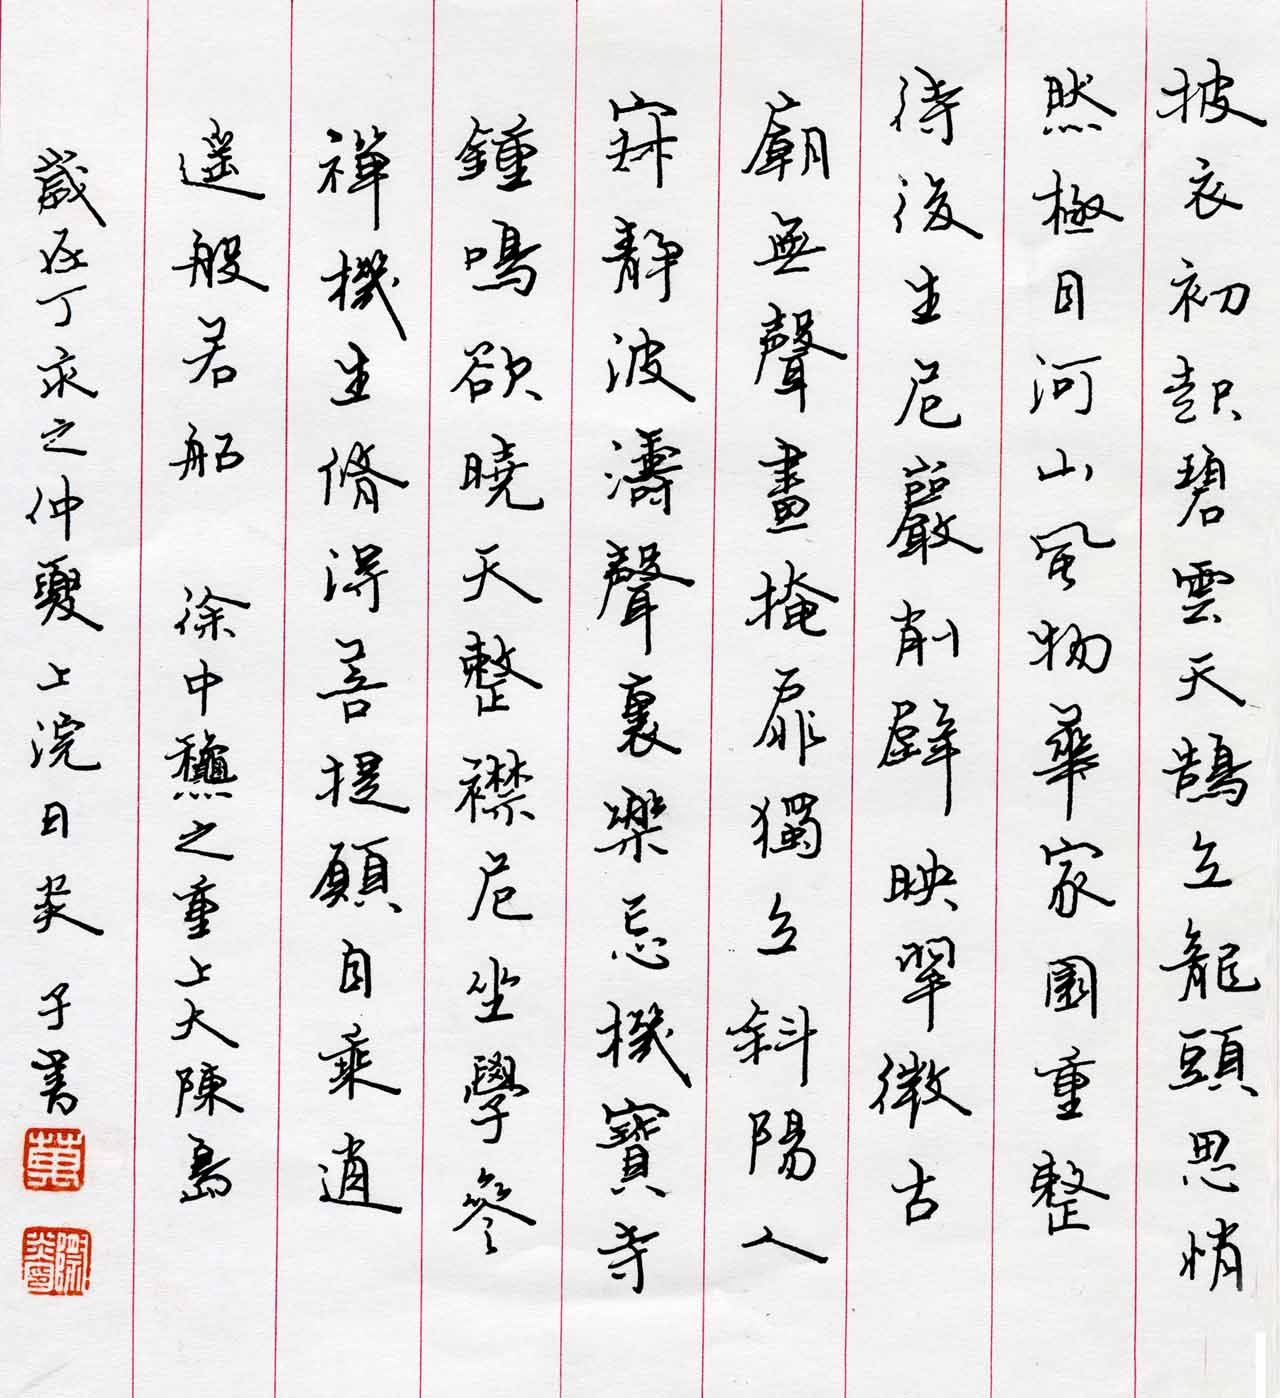 披衣初起碧雲天鵠立龍頭思悄
然極目河山風物華家園重整
待後生卮巖削壁映翠微古
廟無聲晝掩扉獨立斜陽人
寂靜波濤聲裏樂忘機寶寺
鐘鳴欲曉天整襟危坐學參
禪機生脩得菩提願自乘逍
遙般若船 徐中龝之重上大陳島
歲在丁亥之仲夏上浣日炎子書